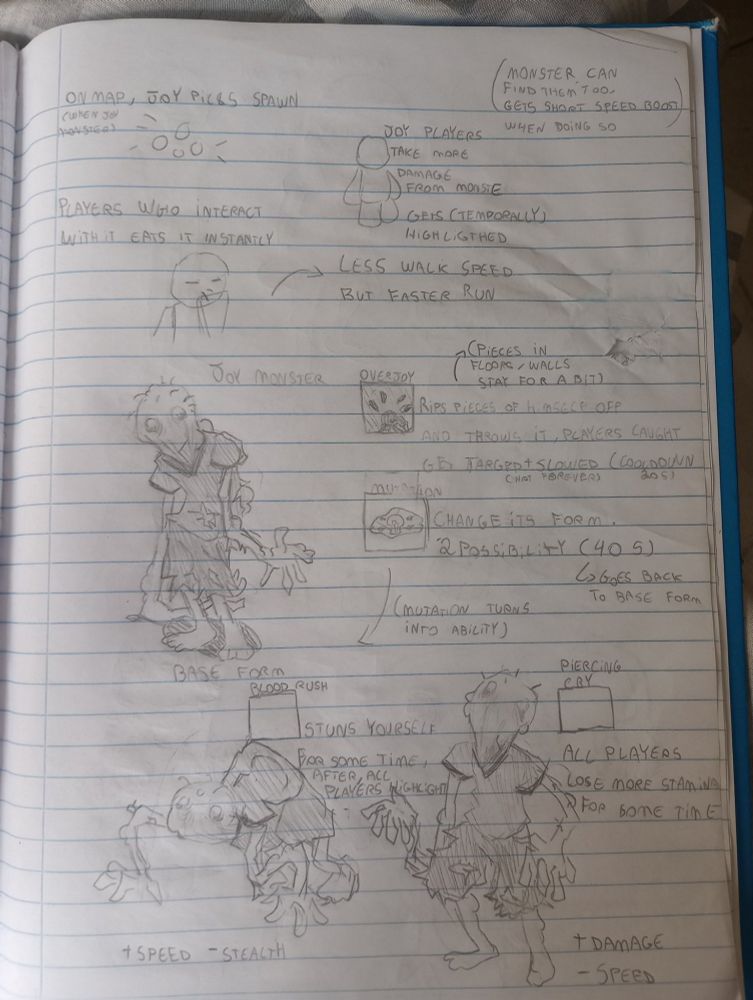 (MONSTER CAN
FIND THEM TOO,
GETS SHORT SPEED BOOST)
WHEN DOING SO
ON MAP, JOY PILLS SPAWN
(WHEN JOY
MONSTER)
JOY PLAYERS
TAKE MORE
DAMAGE
FROM MONSTE
GETS (TEMPORALLY)
HIGHLIGTHED
PLAYERS WHO INTERACT
WITH IT EATS IT INSTANTLY
LESS WALK SPEED
BUT FASTER RUN
JOY MONSTER
OVERJOY
(PIECES IN
FLOORS/WALLS
STAY FOR A BIT)
RIPS PIECES OF HIMSELF OFF
AND THROWS IT, PLAYERS CAUGHT
GET TARGED + SLOWED (COOLDOWN
(NOT FOREVER) 20S)
MUTATION
CHANGE ITS FORM.
2 POSSIBILITY (40 S)
GOES BACK
TO BASE FORM
(MUTATION TURNS
INTO ABILITY)
BASE FORM
BLOOD RUSH
STUNS YOURSELF
FOR SOME TIME,
AFTER, ALL
PLAYERS HIGHLIGHT
+ SPEED - STEALTH
PIERCING
CRY
ALL PLAYERS
LOSE MORE STAMINA
FOR SOME TIME
+ DAMAGE
- SPEED